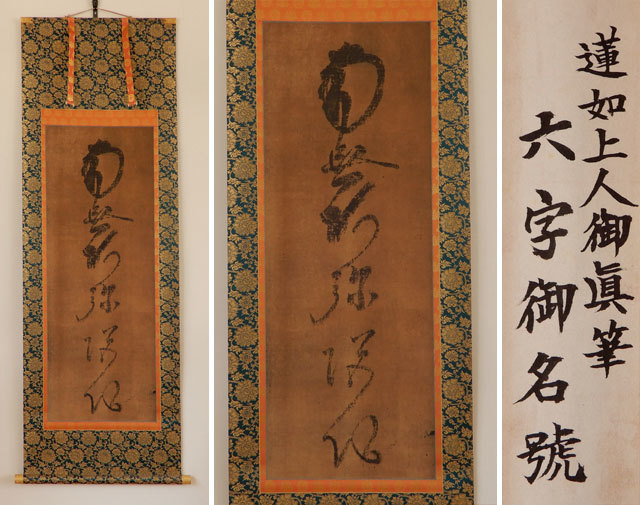 南無阿弥陀仏
南無阿弥陀仏
蓮如上人御眞筆
六字御名號